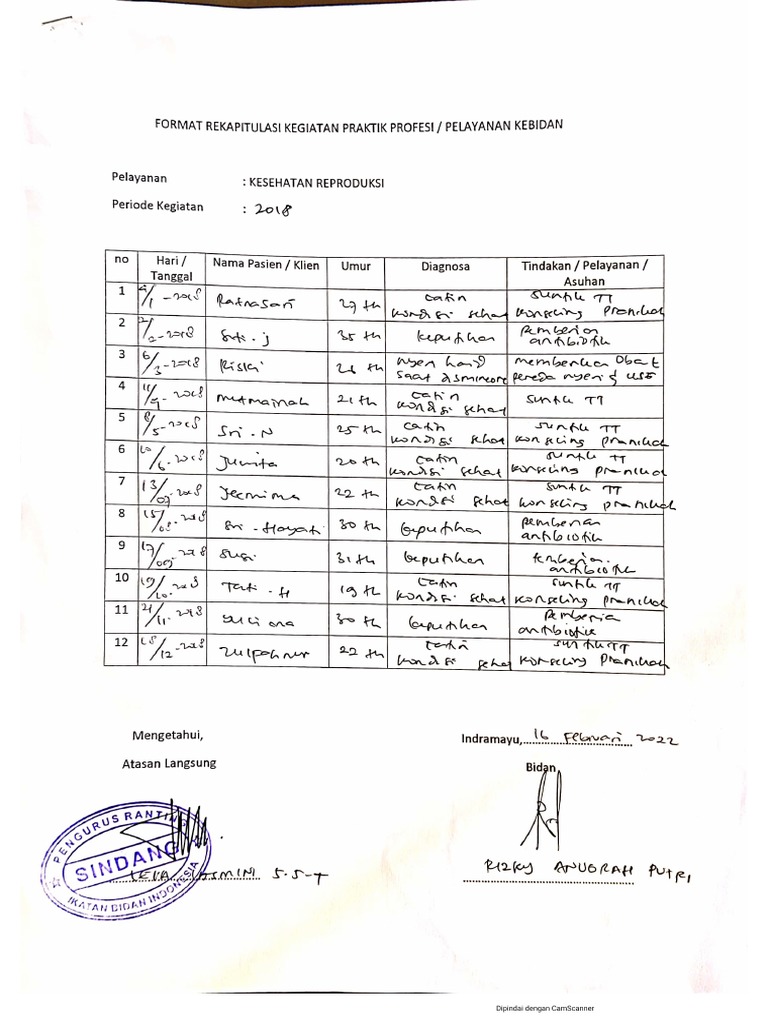 FORMAT REKAPITULASI KEGIATAN PRAKTIK PROFESI / PELAYANAN KEBIDAN
Pelayanan : KESEHATAN REPRODUKSI
Periode Kegiatan : 2018
no Hari / Tanggal Nama Pasien / Klien Umur Diagnosa Tindakan / Pelayanan / Asuhan
1 /1 -2018 Ratnasari 27 th catin kondisi sehat suntik TT konseling pranikah
2 /2 -2018 Siti. j 35 th keputihan pemberian antibiotik
3 6/3 -2018 Riski th nyeri haid saat disminore memberikan obat pereda nyeri
4 11/ -2018 Mutmainah 21 th catin kondisi sehat suntik TT
5 8/5 -2018 Sri. N 25 th catin kondisi sehat suntik TT konseling pranikah
6 10/6 -2018 Juwita 20 th catin kondisi sehat suntik TT konseling pranikah
7 13/07 -2018 22 th catin kondisi sehat suntik TT konseling pranikah
8 15/08 -2018 Sri - Hayati 30 th keputihan pemberian antibiotik
9 17/09 -2018 Susi 31 th keputihan pemberian antibiotik
10 19/10 -2018 Tati - H 19 th catin kondisi sehat suntik TT konseling pranikah
11 21/11 -2018 30 th keputihan pemberian antibiotik
12 /12 -2018 22 th catin kondisi sehat suntik TT konseling pranikah
Mengetahui,
Indramayu, 16 Februari 2022
Atasan Langsung
Bidan
PENGURUS RANTING
SINDANG
IKATAN BIDAN INDONESIA
S.S-T
RIZKY ANUGRAH PUTRI
Dipindai dengan CamScanner